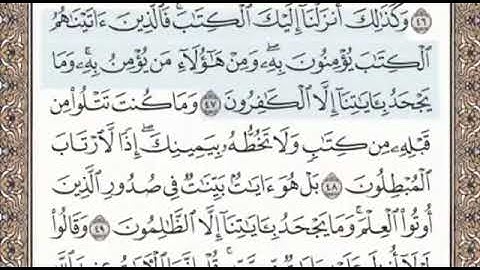 ٤٦ وَكَذَٰلِكَ أَنزَلْنَآ إِلَيْكَ ٱلْكِتَٰبَ ۚ فَٱلَّذِينَ ءَاتَيْنَٰهُمُ
ٱلْكِتَٰبَ يُؤْمِنُونَ بِهِۦ ۖ وَمِنْ هَٰٓؤُلَآءِ مَن يُؤْمِنُ بِهِۦ ۚ وَمَا
يَجْحَدُ بِـَٔايَٰتِنَآ إِلَّا ٱلْكَٰفِرُونَ ٤٧ وَمَا كُنتَ تَتْلُوا۟ مِن
قَبْلِهِۦ مِن كِتَٰبٍ وَلَا تَخُطُّهُۥ بِيَمِينِكَ ۖ إِذًا لَّٱرْتَابَ
ٱلْمُبْطِلُونَ ٤٨ بَلْ هُوَ ءَايَٰتٌۢ بَيِّنَٰتٌ فِى صُدُورِ ٱلَّذِينَ
أُوتُوا۟ ٱلْعِلْمَ ۚ وَمَا يَجْحَدُ بِـَٔايَٰتِنَآ إِلَّا ٱلظَّٰلِمُونَ ٤٩ وَقَالُوا۟